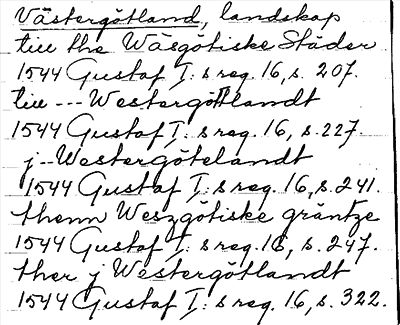 Västergötland, landskap
till the Wäsgötiske Städer
1544 Gustaf I:s reg. 16, s. 207.
till --- Westergöttlandt
1544 Gustaf I:s reg. 16, s. 227.
j -- Westergötelandt
1544 Gustaf I:s reg. 16, s. 241.
thenn Weszgötiske gräntze
1544 Gustaf I:s reg. 16, s. 247.
ther j Westergötlandt
1544 Gustaf I:s reg. 16, s. 322.